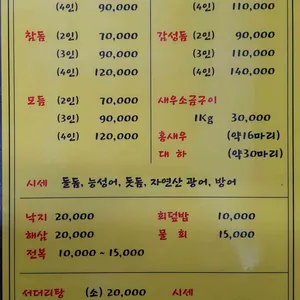 (4인) 90,000
(4인) 110,000
참돔 (2인) 70,000
(3인) 90,000
(4인) 120,000
감성돔 (2인) 90,000
(3인) 110,000
(4인) 140,000
모듬 (2인) 70,000
(3인) 90,000
(4인) 120,000
새우소금구이
1Kg 30,000
흥새우 (약16마리)
대 하 (약30마리)
시세 돌돔, 능성어, 돗돔, 자연산 광어, 방어
낙지 20,000
해삼 20,000
전복 10,000 ~ 15,000
회덮밥 10,000
물 회 15,000
서더리탕 (소) 20,000 시세